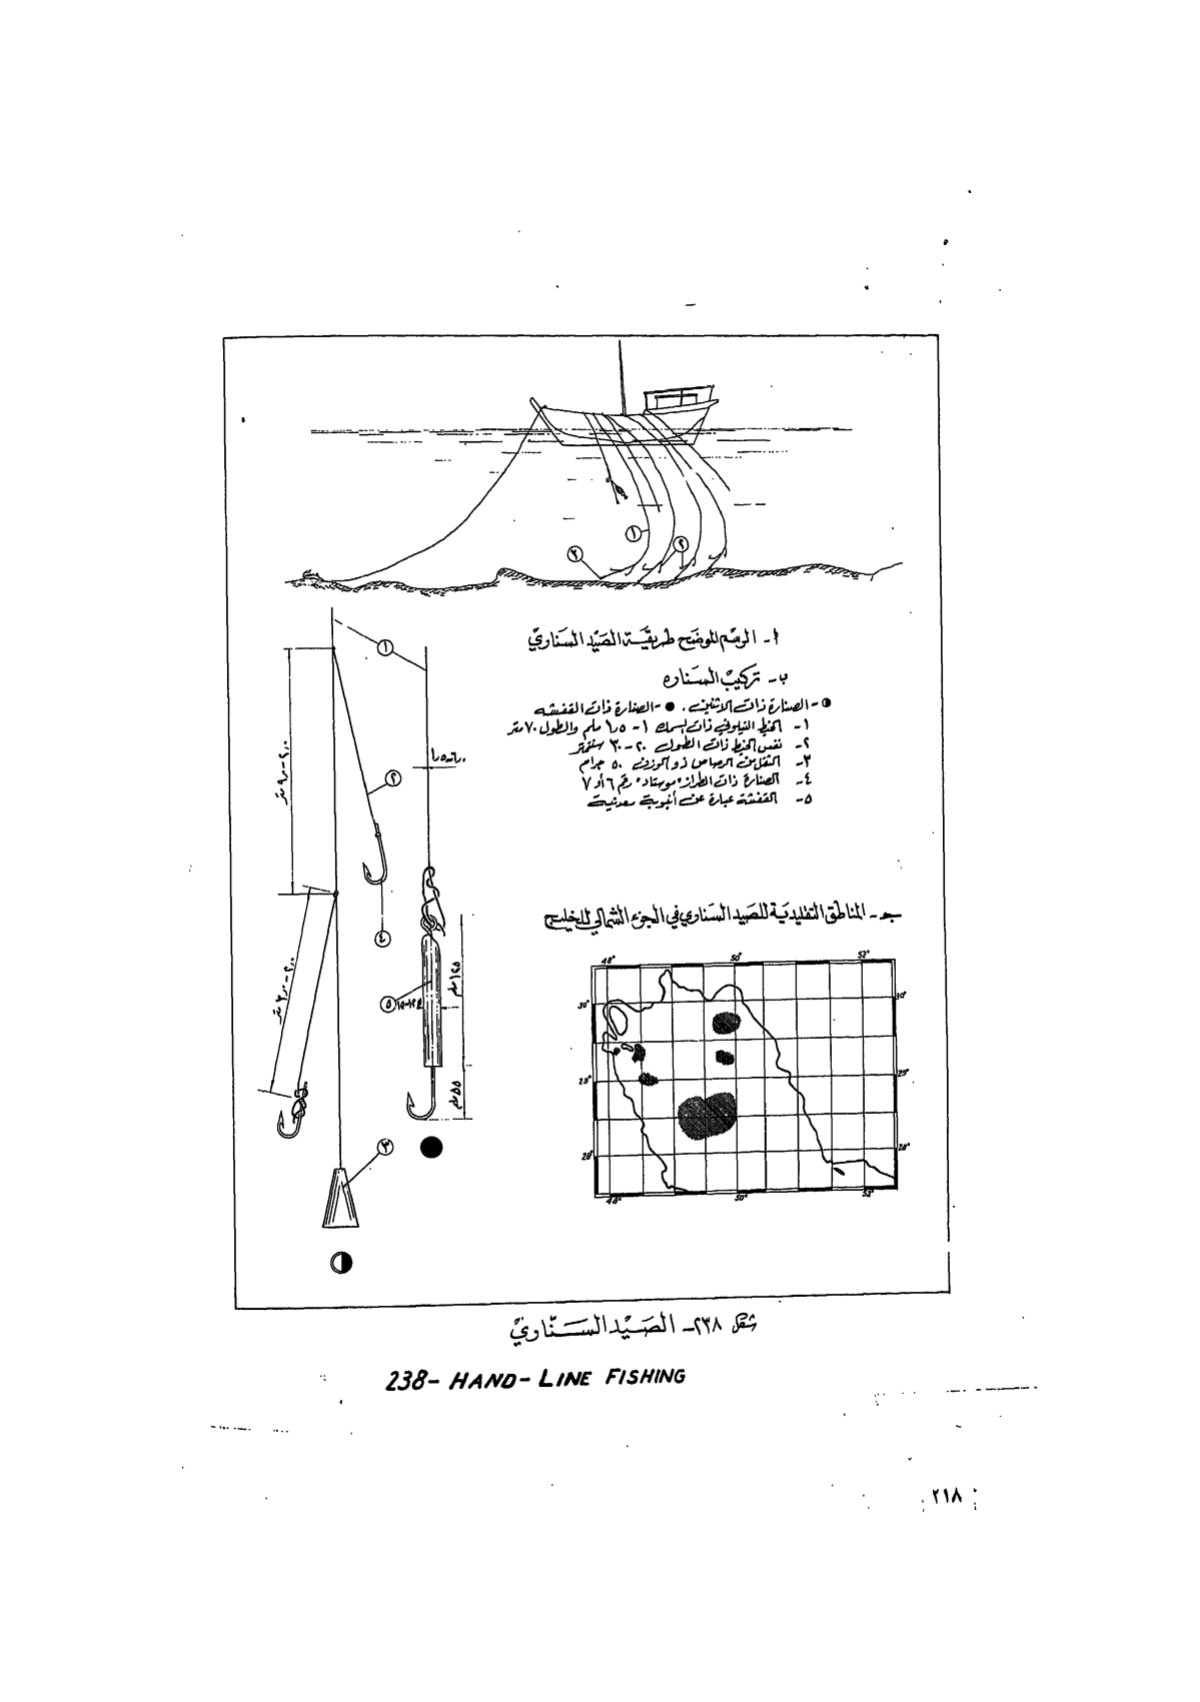 أ - الرسم الموضح طريقة الصيد السناوي
ب - تركيب السناره
◑ - الصنارة ذات الاثنين . ● - الصنارة ذات القفشه
١- الخيط النيلوني ذات السمك ١ - ١٫٥ ملم والطول ٧٠ متر
٢- نفس الخيط ذات الطول ٢٠ - ٣٠ سنتمتر
٣- الثقل من الرصاص ذو الوزن ٥٠ جرام
٤- الصنارة ذات الطراز "موستاد" رقم ٦ أو ٧
٥- القفشة عبارة عن أنبوبة معدنية
جـ - المناطق التقليدية للصيد السناوي في الجزء الشمالي للخليج
١
٢
٣
٤
٥
١٢٥ ملم
٥٥ ملم
48° 50° 52°
30° 30°
29° 29°
28° 28°
48° 50° 52°
شكل ٢٣٨ - الصيد السناوي
238- HAND-LINE FISHING
٢١٨